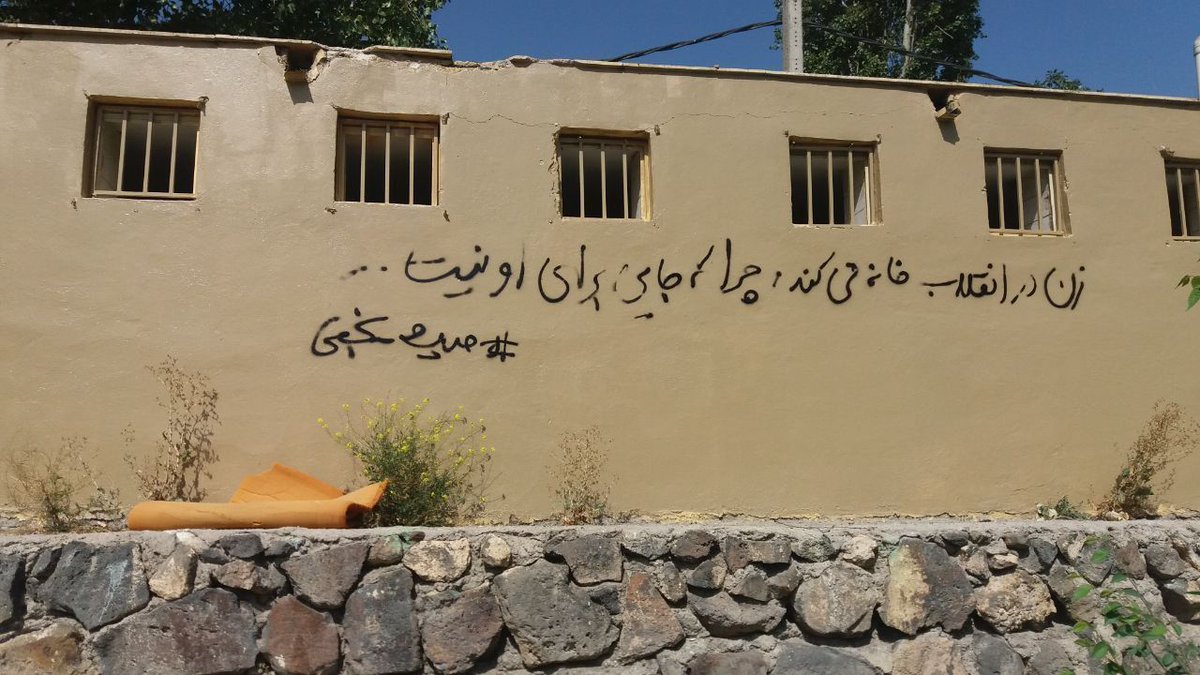 زن در انقلاب خانه می کند، چرا که جایی برای او نیست...
#صدیقه